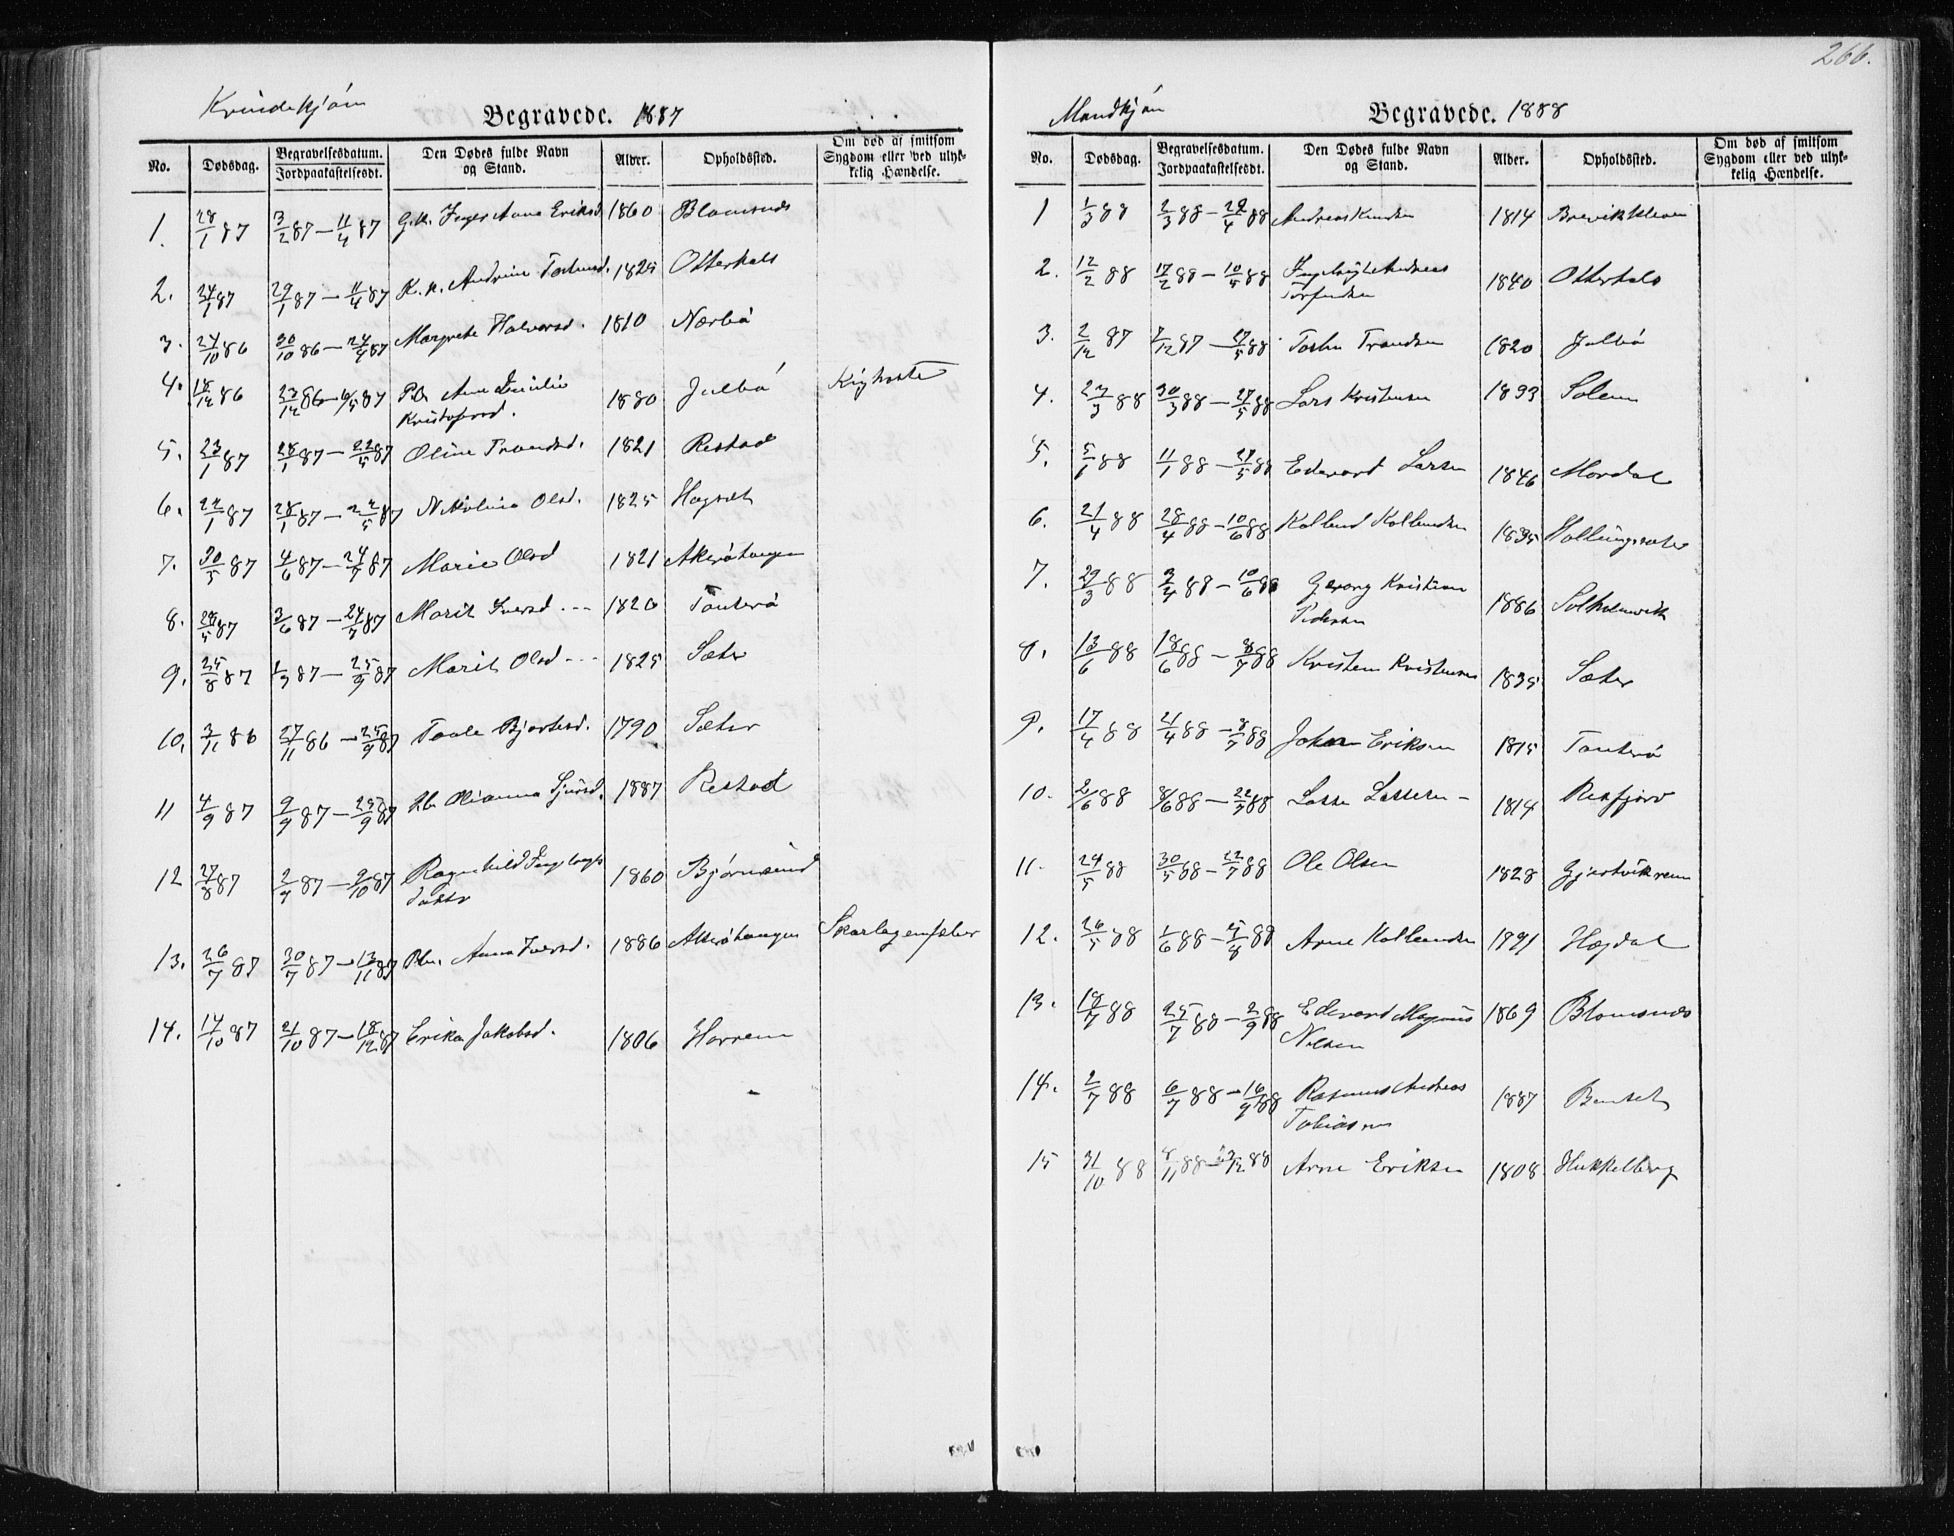 266.
Kvindekjøn
Begravede. 1887
No. Dødsdag. Begravelsesdatum. Jordpaakastelsesdt. Den Dødes fulde Navn og Stand. Alder. Opholdssted. Om død af smitsom Sygdom eller ved ulykkelig Hændelse.
1. 28/1 87 3/2 87 – 11/4 87 G.k. Inger Anna Eriksd. 1860 Blomsnes
2. 24/1 87 29/1 87 – 11/4 87 K.k. Andrine 1825 Otterhals
3. 24/10 86 30/10 86 – 24/4 87 Margrete Halvorsd. 1810 Nærbø
4. 18/12 86 23/12 86 – 6/5 87 Pb. Ane
Kristofersd. 1880 Julbø Kighoste
5. 23/1 87 28/1 87 – 22/5 87 Oline Trondsd. 1821 Restad
6. 22/1 87 28/1 87 – 22/5 87 Nikolina Olsd. 1825 Hagset
7. 30/5 87 4/6 87 – 24/7 87 Marie Olsd 1821 Akerøtangen
8. 28/5 87 3/6 87 – 24/7 87 Marit Iversd. 1826 Tauterø
9. 25/8 87 1/9 87 – 25/9 87 Marit Olsd 1825 Sæter
10. 3/11 86 27/11 86 – 25/9 87 Toale Bjertesd. 1790 Sæter
11 4/9 87 9/9 87 – 25/9 87 Olianna Sjursd. 1887 Restad
12 27/8 87 2/9 87 – 9/10 87 Ragnhild Ingebrigts
datter 1860 Bjørnsund
13. 26/7 87 30/7 87 – 13/11 87 Pb. Anna Iversd. 1886 Akerøtangen Skarlagensfeber
14. 14/10 87 21/10 87 – 18/12 87 Erika Jakobsd. 1806 Harrem
Mandkjøn
Begravede. 1888
No. Dødsdag. Begravelsesdatum. Jordpaakastelsesdt. Den Dødes fulde Navn og Stand. Alder. Opholdssted. Om død af smitsom Sygdom eller ved ulykkelig Hændelse.
1 1/3 88 2/3 88 – 22/4 88 Andreas Knudsen 1814 Brevikkleven
2. 12/2 88 17/2 88 – 10/5 88 Ingebrigt Andreas
Torfindsen 1840 Otterhals
3. 2/12 87 7/12 87 – 27/5 88 Trondsen 1820 Julbø
4. 23/3 88 30/3 88 – 27/5 88 Lars Kristensen 1833 Solem
5. 5/1 88 11/1 88 – 27/5 88 Edevard Larsen 1846 Mordal
6. 21/4 88 28/4 88 – 10/6 88 Kolbend Kolbendsen 1835 Hollingsæter
7. 29/3 88 3/4 88 – 10/6 88 Georg Kristian
Pedersen 1886 Solholmvik
8. 13/6 88 18/6 88 – 8/7 88 Kristen Kristensen 1835 Sæter
9. 17/4 88 21/4 88 – 8/7 88 Johan Eriksen 1815 Tauterø
10. 2/6 88 8/6 88 – 22/7 88 Lasse Lassesen 1814 Rekfjorv
11. 24/5 88 30/5 88 – 22/7 88 Ole Olsen 1828 Gjerstvikrem
12. 26/5 88 1/6 88 – 5/8 88 Arne Kolbendsen 1791 Hægdal
13. 18/7 88 25/7 88 – 2/9 88 Edevard Magnus
Nilsen 1869 Blomsnes
14. 2/7 88 6/7 88 – 16/9 88 Rasmus Andreas
Tobiassen 1887 Bentset
15 31/10 88 8/11 88 – /12 88 Arne Eriksen 1808 Hukkelberg